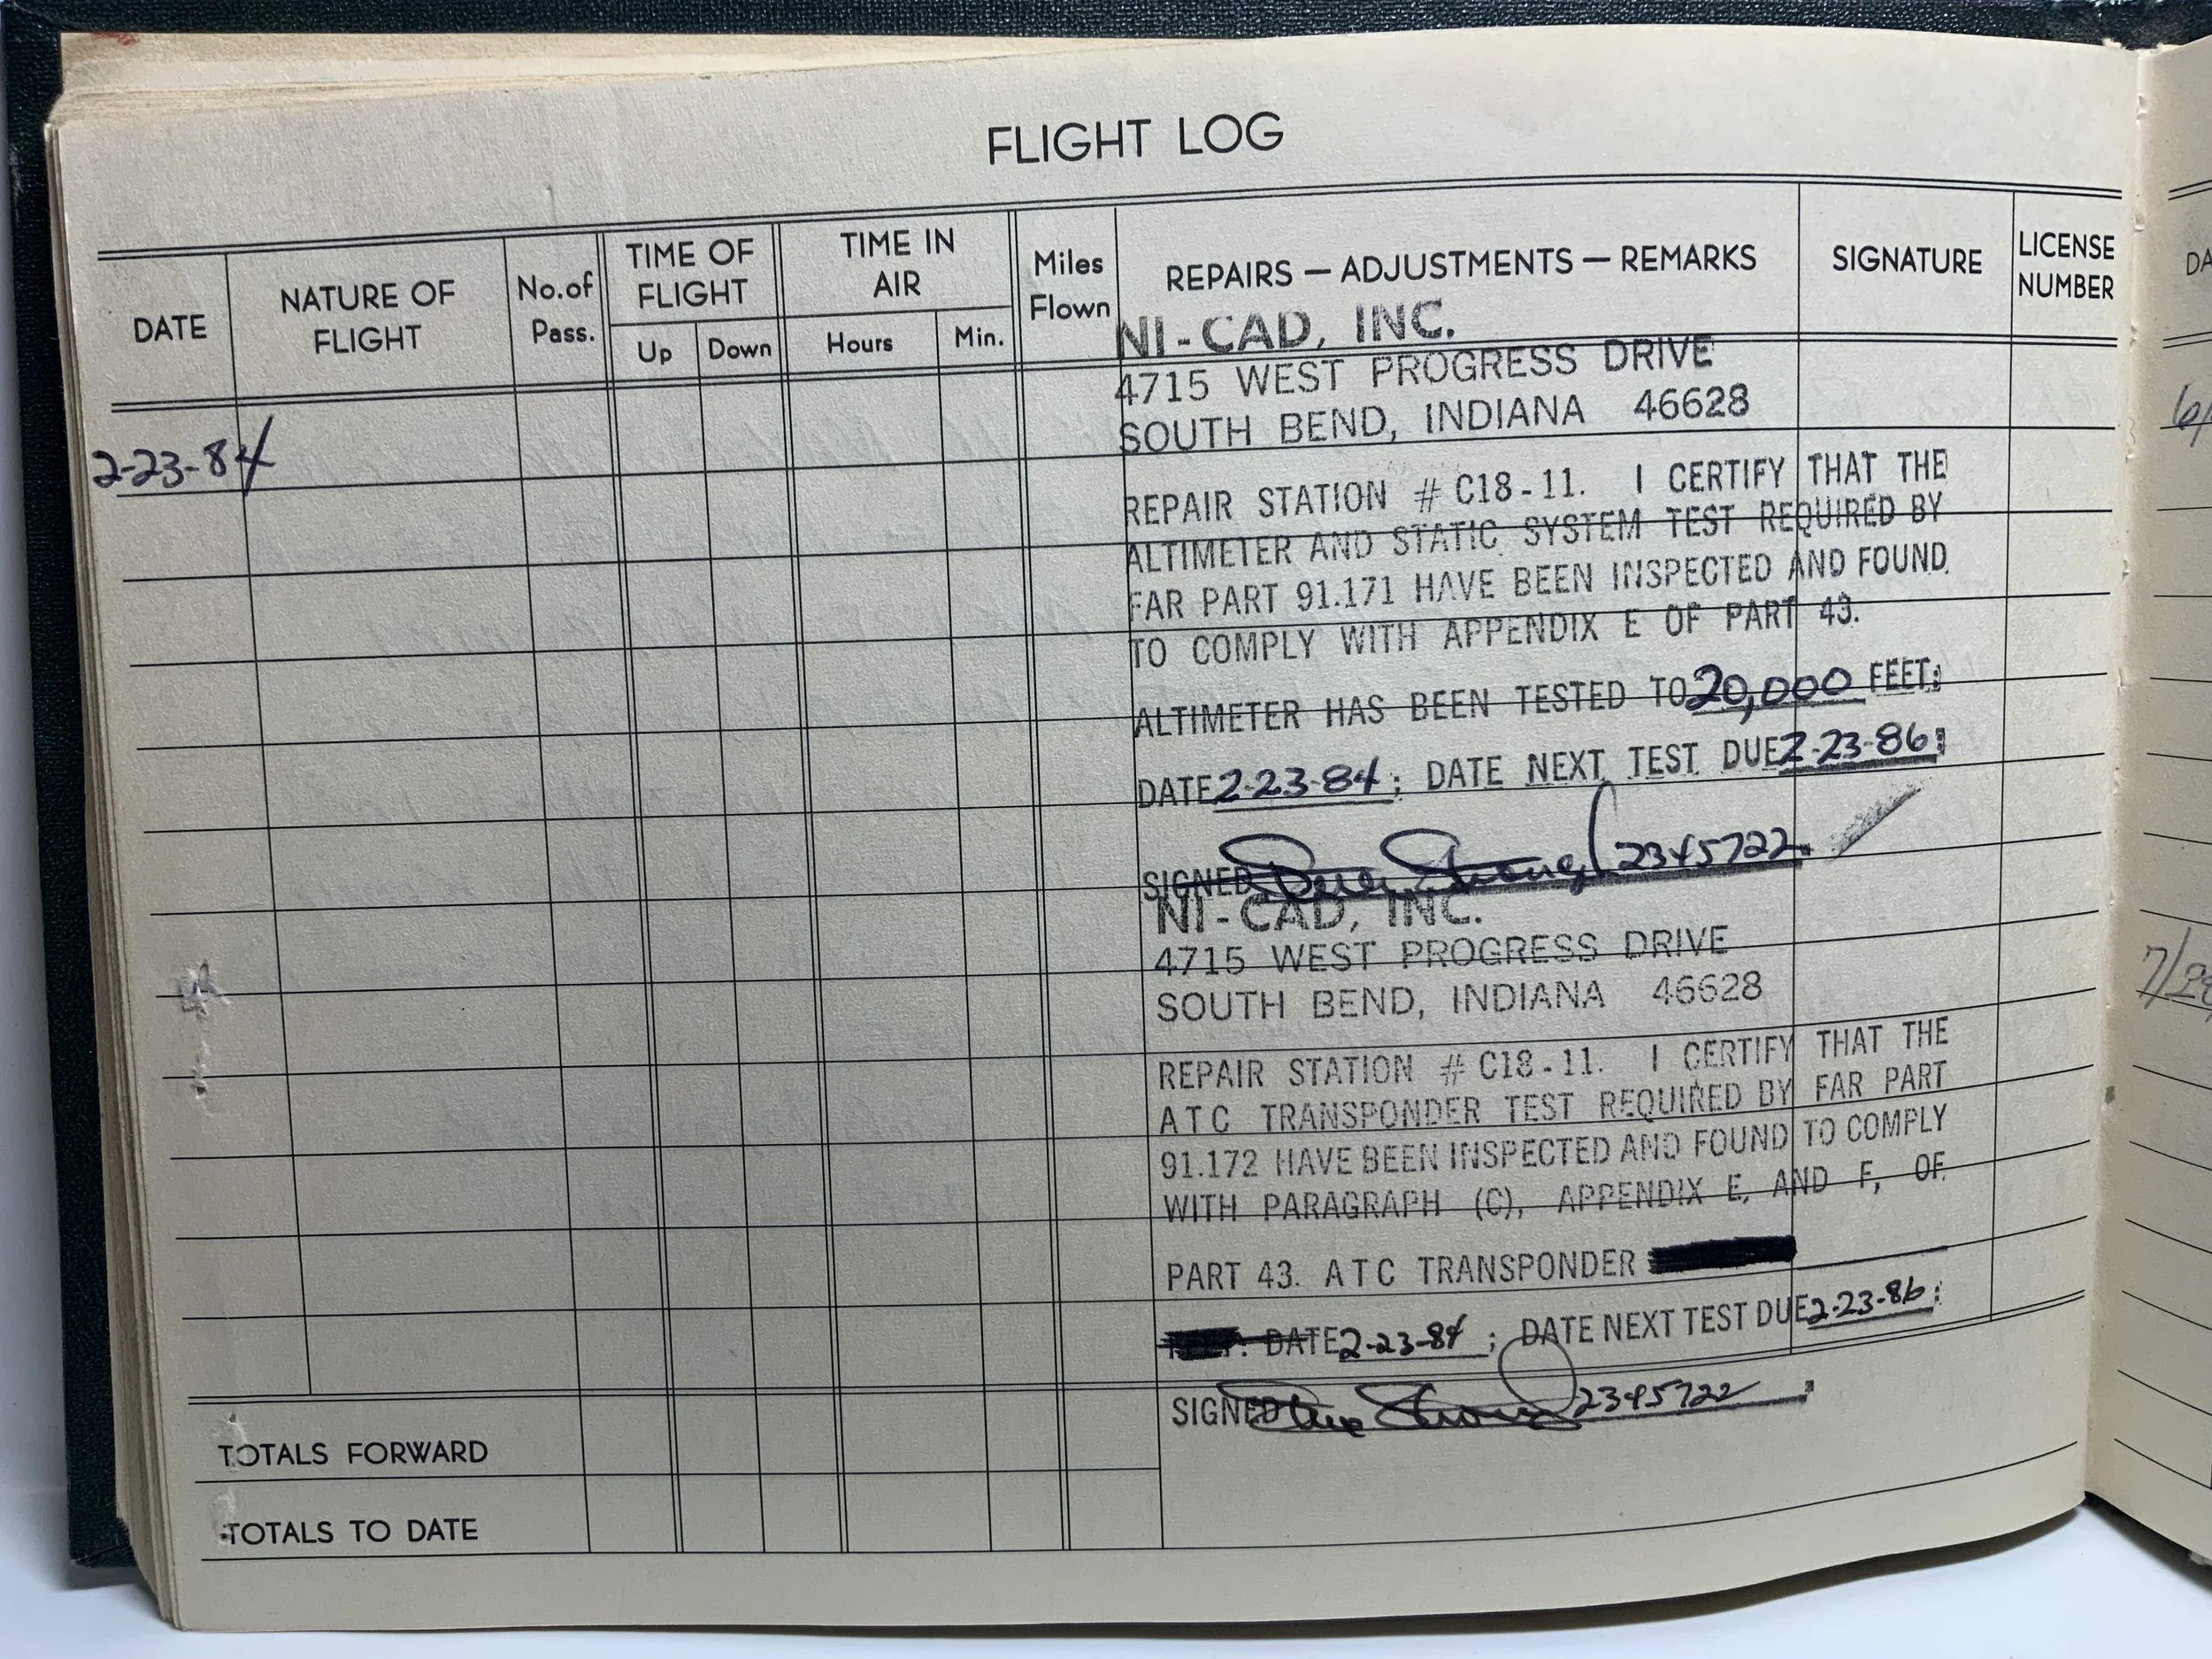 FLIGHT LOG
DATE
NATURE OF FLIGHT
No. of Pass.
TIME OF FLIGHT
Up
Down
TIME IN AIR
Hours
Min.
Miles Flown
REPAIRS — ADJUSTMENTS — REMARKS
SIGNATURE
LICENSE NUMBER
2-23-84
NI-CAD, INC.
4715 WEST PROGRESS DRIVE
SOUTH BEND, INDIANA 46628
REPAIR STATION # C18-11. I CERTIFY THAT THE
ALTIMETER AND STATIC SYSTEM TEST REQUIRED BY
FAR PART 91.171 HAVE BEEN INSPECTED AND FOUND
TO COMPLY WITH APPENDIX E OF PART 43.
ALTIMETER HAS BEEN TESTED TO 20,000 FEET;
DATE 2-23-84; DATE NEXT TEST DUE 2-23-86;
SIGNED 2345722
NI-CAD, INC.
4715 WEST PROGRESS DRIVE
SOUTH BEND, INDIANA 46628
REPAIR STATION # C18-11. I CERTIFY THAT THE
ATC TRANSPONDER TEST REQUIRED BY FAR PART
91.172 HAVE BEEN INSPECTED AND FOUND TO COMPLY
WITH PARAGRAPH (C), APPENDIX E, AND F, OF
PART 43. ATC TRANSPONDER
DATE 2-23-84; DATE NEXT TEST DUE 2-23-86;
SIGNED 2345722
TOTALS FORWARD
TOTALS TO DATE
DA
6/
7/28